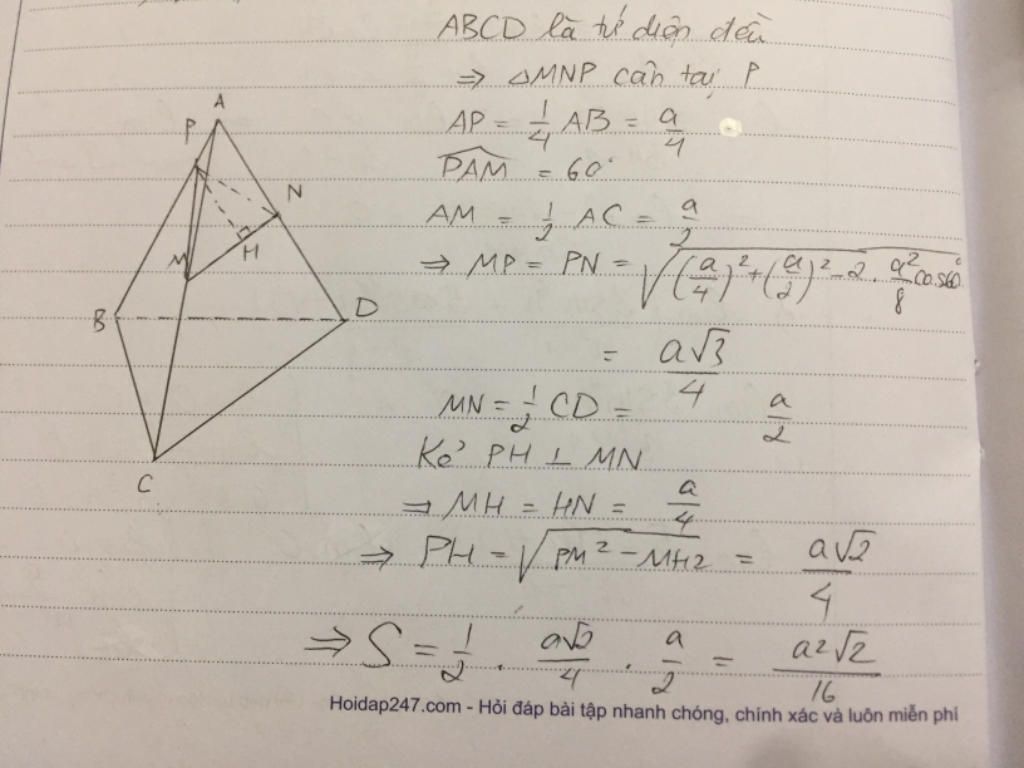 ABCD là tứ diện đều
⇒ △MNP cân tại P
AP = 1/4 AB = a/4
PAM = 60°
AM = 1/2 AC = a/2
⇒ MP = PN = √((a/4)² + (a/2)² - 2 . a²/8 cos60°)
= a√3/4
MN = 1/2 CD = a/2
Kẻ PH ⊥ MN
⇒ MH = HN = a/4
⇒ PH = √(PM² - MH2) = a√2/4
⇒ S = 1/2 . a√2/4 . a/2 = a²√2/16
A
P
N
H
M
B
D
C
Hoidap247.com - Hỏi đáp bài tập nhanh chóng, chính xác và luôn miễn phí